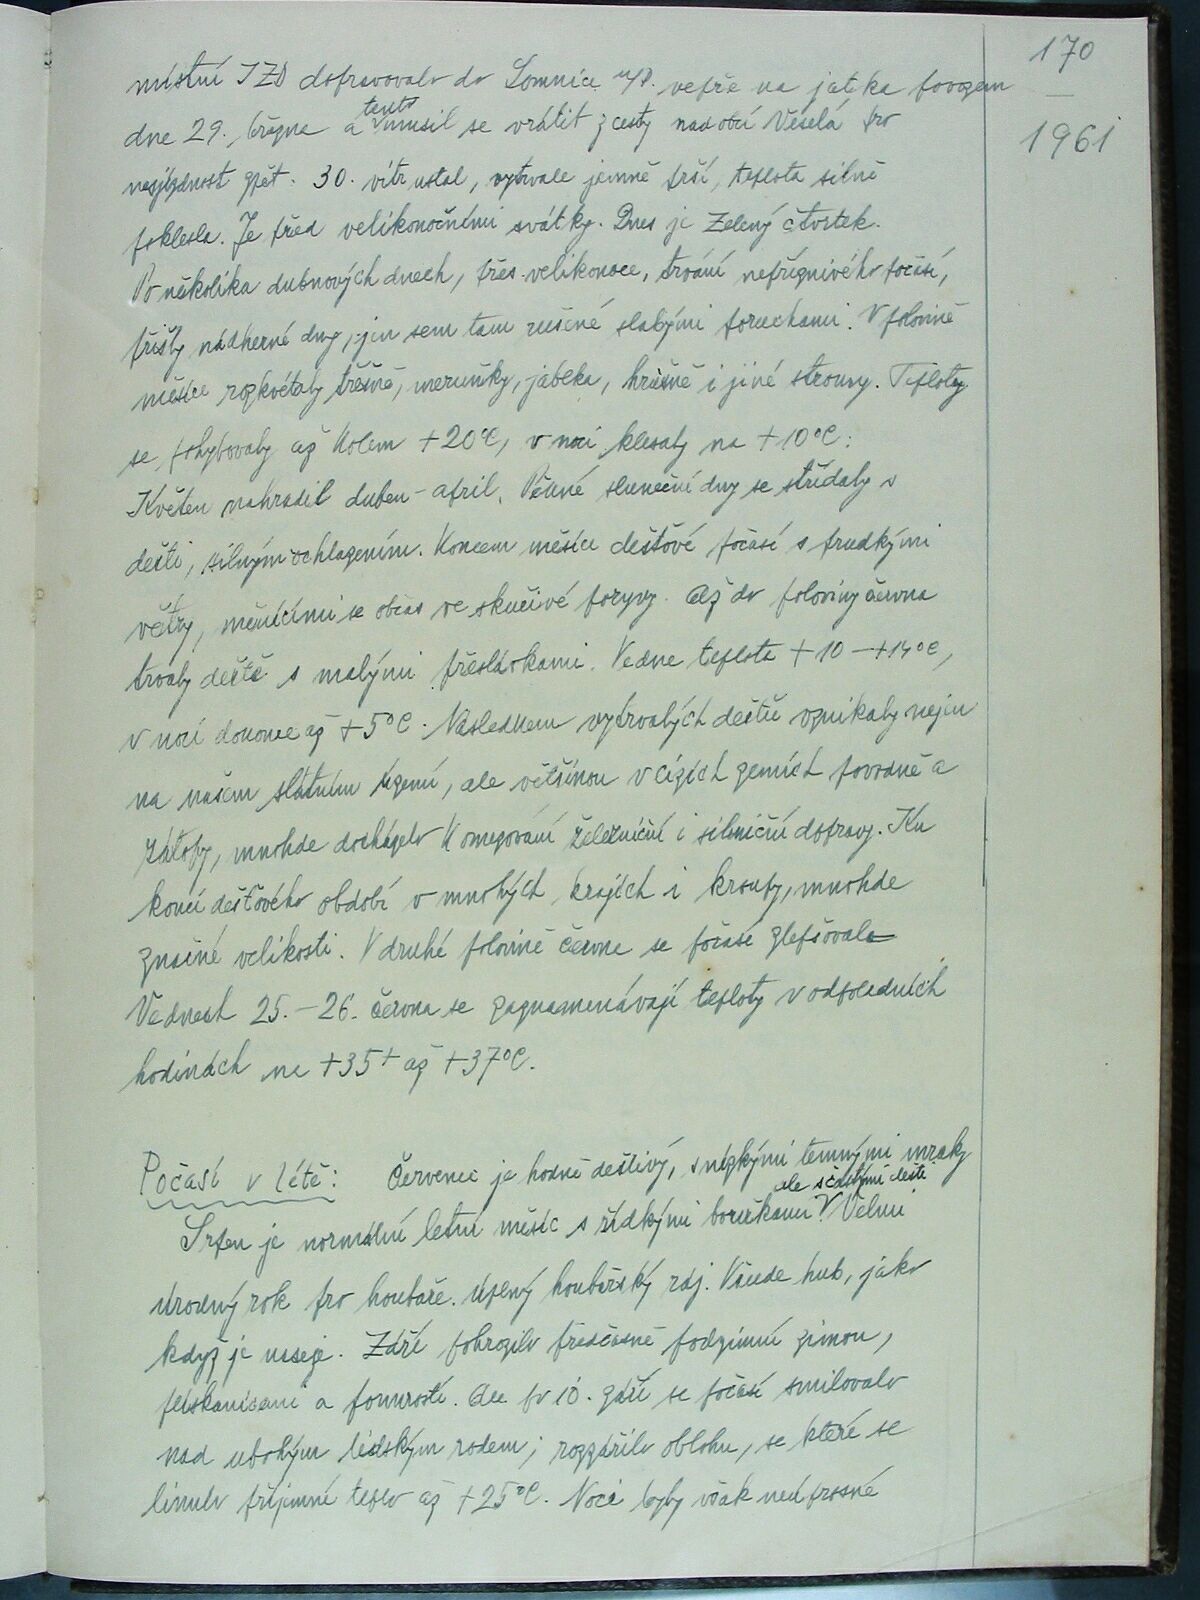 170
1961
místní JZD dopravovalo do Lomnice n/P. vepře na jatka povozem
dne 29. března a tento musil se vrátit z cesty nad obcí Veselá pro
nesjízdnost zpět. 30. vítr ustal, vytrvale jemně prší, teplota silně
poklesla. Je před velikonočními svátky. Dnes je Zelený čtvrtek.
Po několika dubnových dnech, přes velikonoce, trvání nepříznivého počasí,
přišly nádherné dny, jen sem tam rušené slabými poruchami. V polovině
měsíce rozkvétaly třešně, meruňky, jablka, hrušně i jiné stromy. Teploty
se pohybovaly až kolem +20°C, v noci klesaly na +10°C.
Květen nahradil duben - april. Pěkné sluneční dny se střídaly s
dešti, silným ochlazením. Koncem měsíce dešťové počasí s prudkými
větry, měnícími se občas ve skučivé poryvy. Až do poloviny června
trvaly deště s malými přestávkami. Ve dne teplota +10 - +14°C,
v noci dokonce až +5°C. Následkem vytrvalých dešťů vznikaly nejen
na našem státním území, ale většinou v cizích zemích povodně a
zátopy, mnohde docházelo k omezování železniční i silniční dopravy. Ku
konci dešťového období v mnohých krajích i kroupy, mnohde
značné velikosti. V druhé polovině června se počasí zlepšovalo
Ve dnech 25. - 26. června se zaznamenávají teploty v odpoledních
hodinách na +35+ až +37°C.
Počasí v létě: Červenec je hodně deštivý, s nízkými temnými mraky
Srpen je normální letní měsíc s řídkými bouřkami ale s častými dešti. Velmi
úrodný rok pro houbaře. Úplný houbařský ráj. Všude hub, jako
když je naseje. Září pohrozilo předčasně podzimní zimou,
plískanicemi a ponurostí. Ale po 10. září se počasí smilovalo
nad ubohým lidským rodem; rozzářilo oblohu, se které se
linulo příjemné teplo až +25°C. Noci byly však